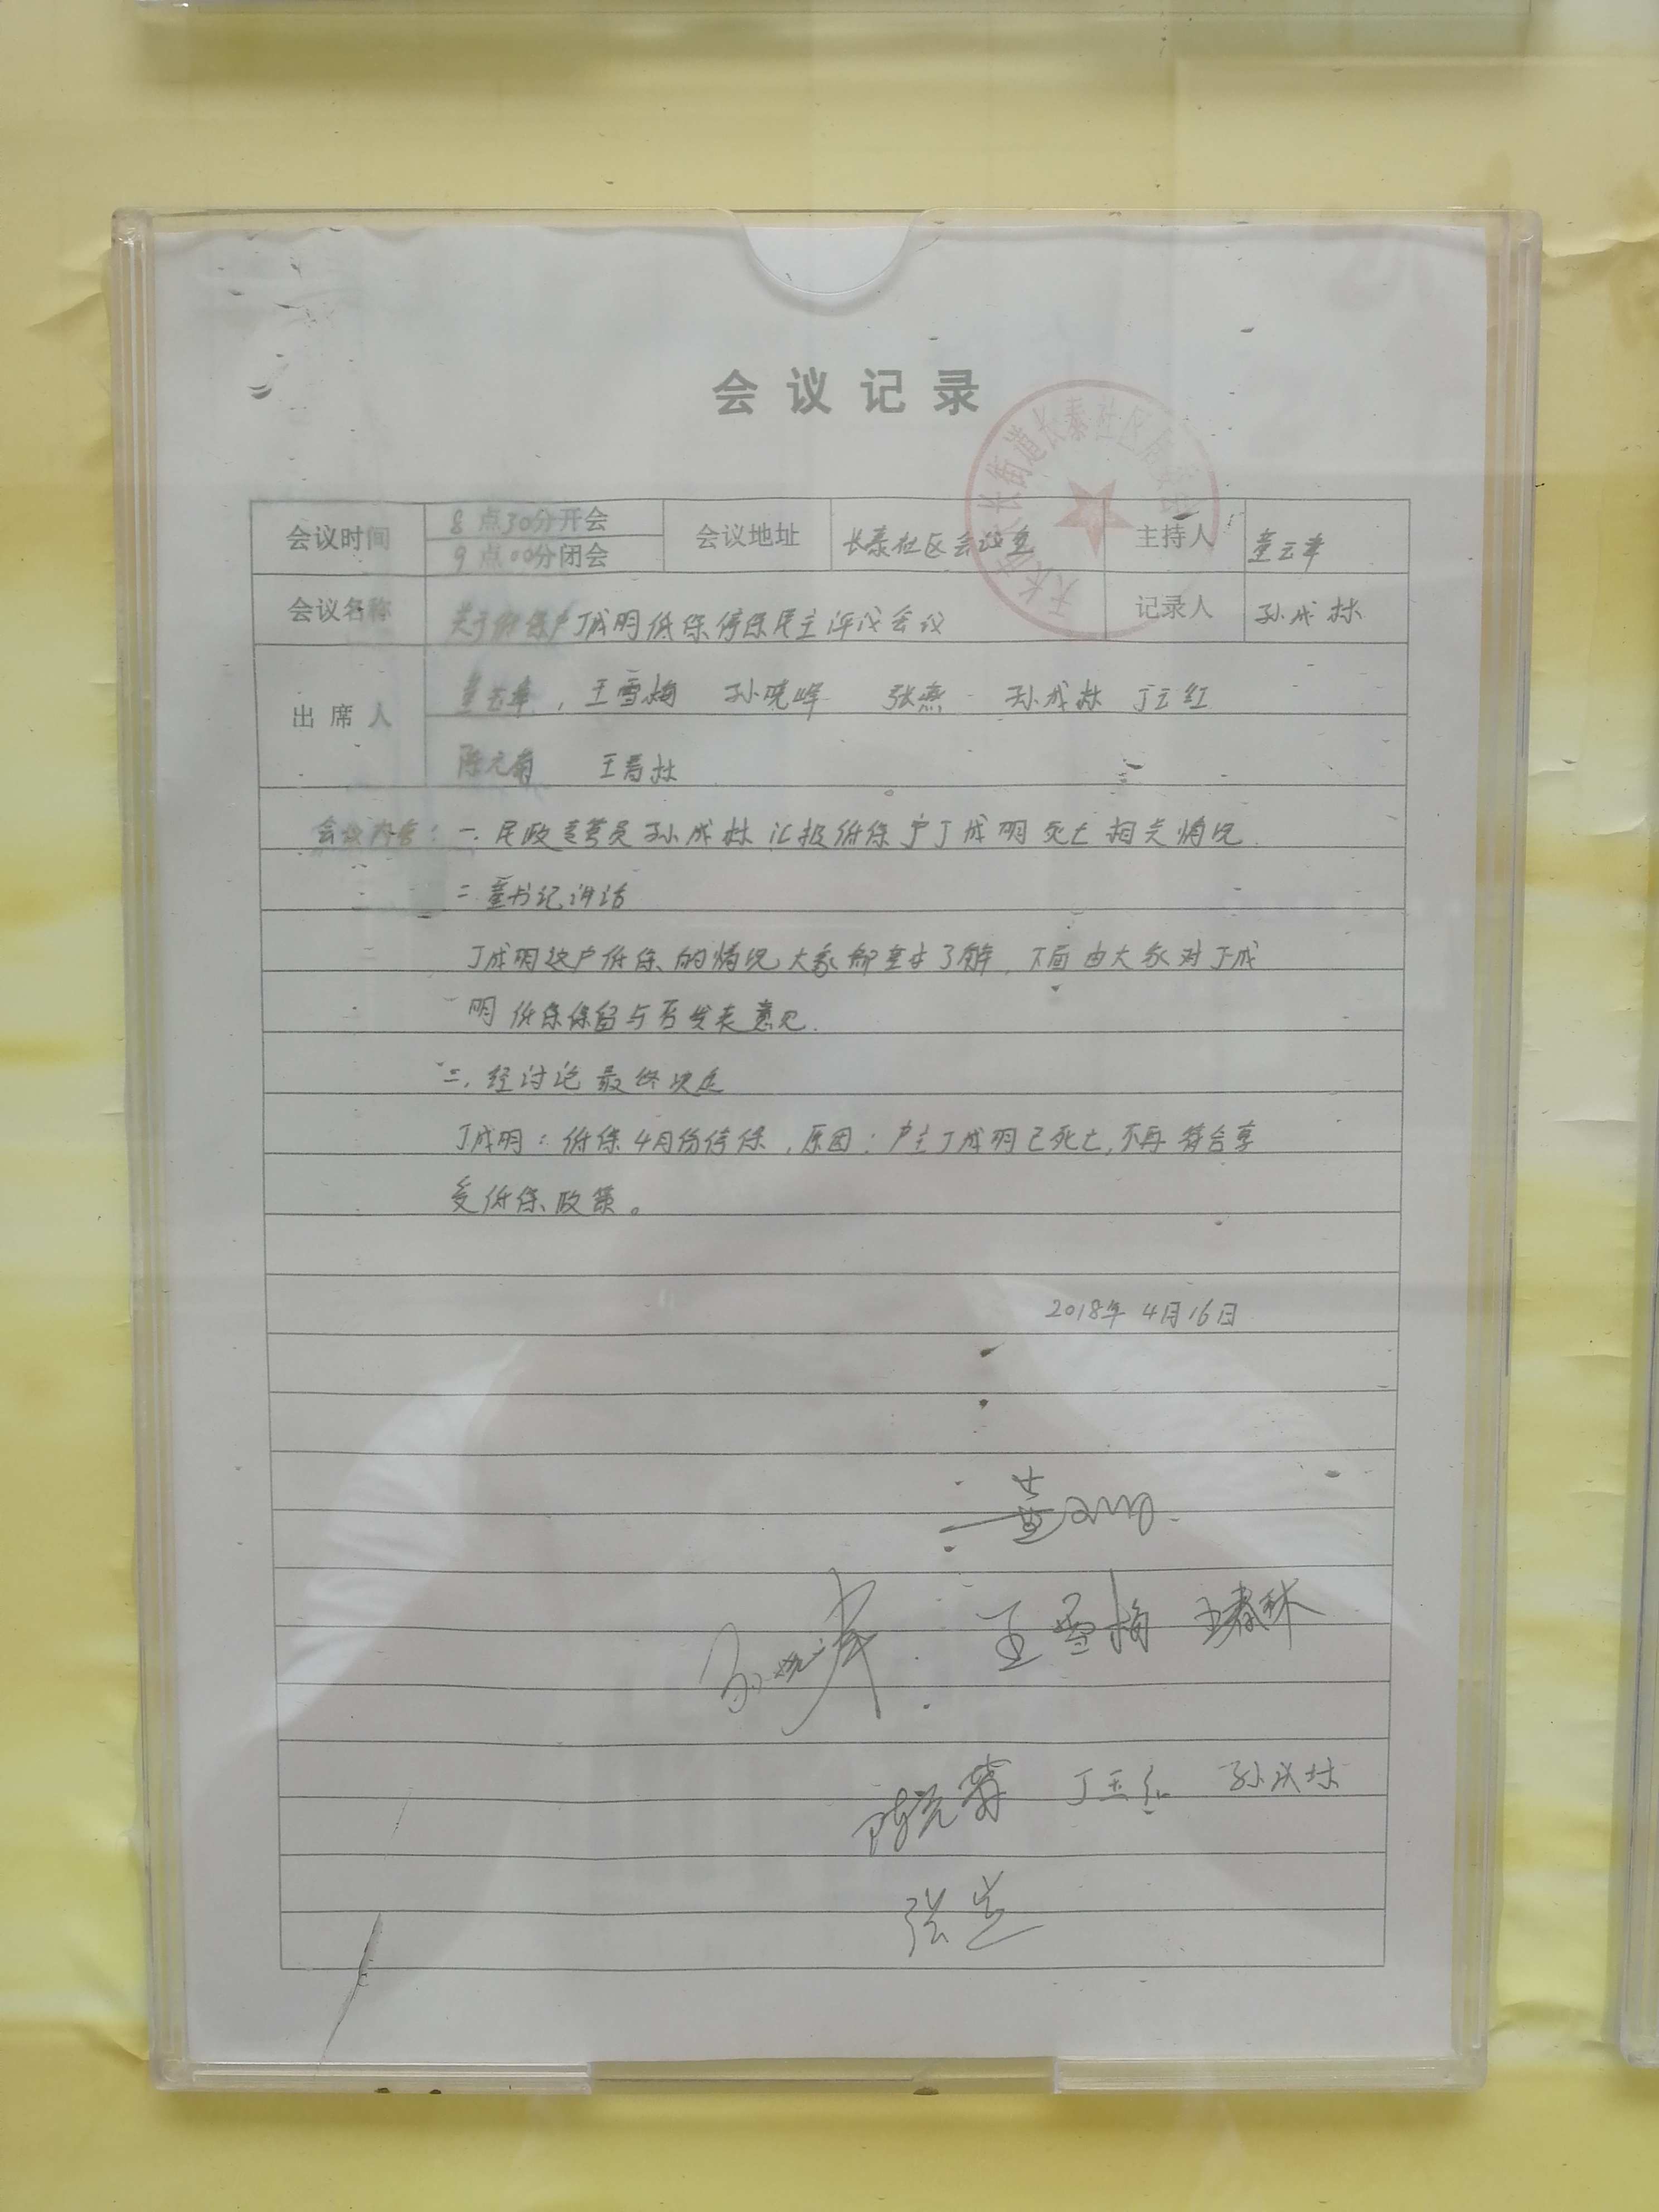 会议记录
天长街道长泰社区居委会
会议时间 8点30分开会 会议地址 长泰社区会议室 主持人 董云峯
9点00分闭会
会议名称 关于低保户丁成明低保停保民主评议会议 记录人 孙成林
出席人 董云峯，王雪梅 孙晓峰 张燕 孙成林 丁玉红
陈元菊 王春林
会议内容：一.民政专管员孙成林汇报低保户丁成明死亡相关情况.
二.董书记讲话
丁成明这户低保的情况大家都基本了解，下面由大家对丁成
明低保保留与否发表意见.
三.经讨论最终决定
丁成明：低保4月份停保，原因：户主丁成明已死亡，不再符合享
受低保政策。
2018年4月16日
孙晓峰 王雪梅 王春林
陈元菊 丁玉红 孙成林